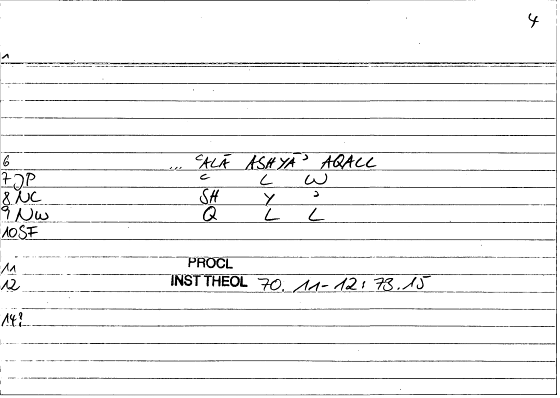 4
1
6 ... ʿALĀ ASHYĀʾ AQALL
7 JP ʿ L W
8 NC SH Y ʾ
9 NW Q L L
10 SF
11 PROCL
12 INST THEOL 70. 11-12; 73.15
14?